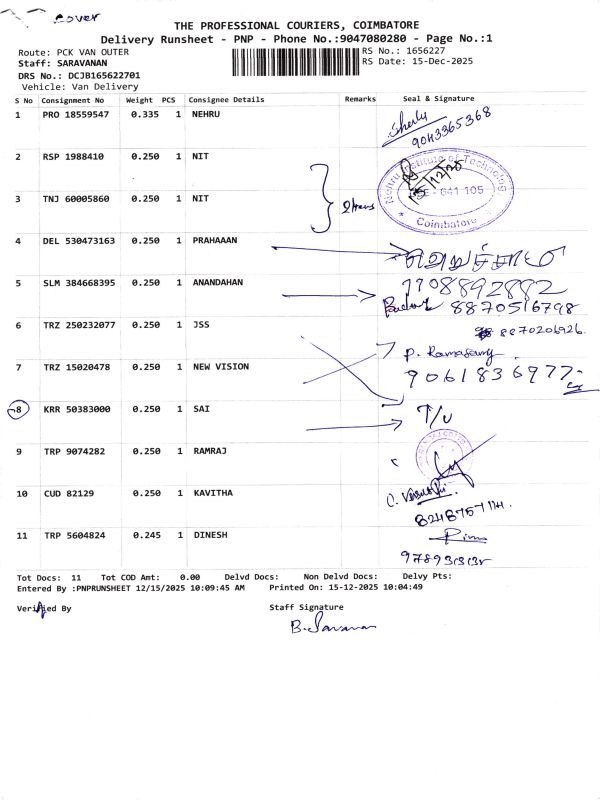 cover
THE PROFESSIONAL COURIERS, COIMBATORE
Delivery Runsheet - PNP - Phone No.:9047080280 - Page No.:1
Route: PCK VAN OUTER
RS No.: 1656227
Staff: SARAVANAN
RS Date: 15-Dec-2025
DRS No.: DCJB165622701
Vehicle: Van Delivery
S No Consignment No Weight PCS Consignee Details Remarks Seal & Signature
1 PRO 18559547 0.335 1 NEHRU
9043365368
2 RSP 1988410 0.250 1 NIT
Nehru Institute of Technology
641 105
Coimbatore
3 TNJ 60005860 0.250 1 NIT
4 DEL 530473163 0.250 1 PRAHAAAN
5 SLM 384668395 0.250 1 ANANDAHAN
7708892882
8870516798
6 TRZ 250232077 0.250 1 JSS
8870206926.
7 TRZ 15020478 0.250 1 NEW VISION
P. Ramasamy
9061836977
8 KRR 50383000 0.250 1 SAI
9 TRP 9074282 0.250 1 RAMRAJ
10 CUD 82129 0.250 1 KAVITHA
11 TRP 5604824 0.245 1 DINESH
Tot Docs: 11 Tot COD Amt: 0.00 Delvd Docs: Non Delvd Docs: Delvy Pts:
Entered By :PNPRUNSHEET 12/15/2025 10:09:45 AM Printed On: 15-12-2025 10:04:49
Verified By Staff Signature
B. Saravanan